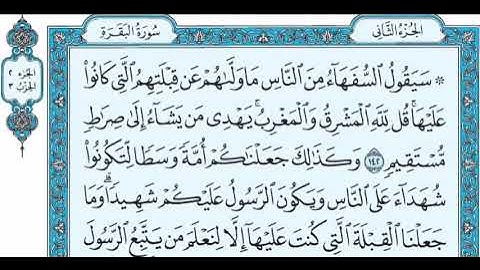 الجزء الثاني
سورة البقرة
الجزء ٢
الحزب ٣
۞ سَيَقُولُ ٱلسُّفَهَآءُ مِنَ ٱلنَّاسِ مَا وَلَّىٰهُمْ عَن قِبْلَتِهِمُ ٱلَّتِى كَانُوا۟
عَلَيْهَا ۚ قُل لِّلَّهِ ٱلْمَشْرِقُ وَٱلْمَغْرِبُ ۚ يَهْدِى مَن يَشَآءُ إِلَىٰ صِرَٰطٍ
مُّسْتَقِيمٍ ١٤٢ وَكَذَٰلِكَ جَعَلْنَٰكُمْ أُمَّةً وَسَطًا لِّتَكُونُوا۟
شُهَدَآءَ عَلَى ٱلنَّاسِ وَيَكُونَ ٱلرَّسُولُ عَلَيْكُمْ شَهِيدًا ۗ وَمَا
جَعَلْنَا ٱلْقِبْلَةَ ٱلَّتِى كُنتَ عَلَيْهَآ إِلَّا لِنَعْلَمَ مَن يَتَّبِعُ ٱلرَّسُولَ